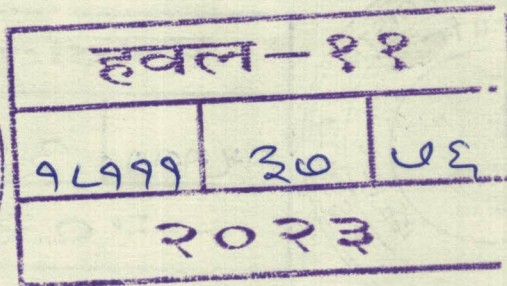 हवल - ११
१८१११ ३७ ५६
२०२३